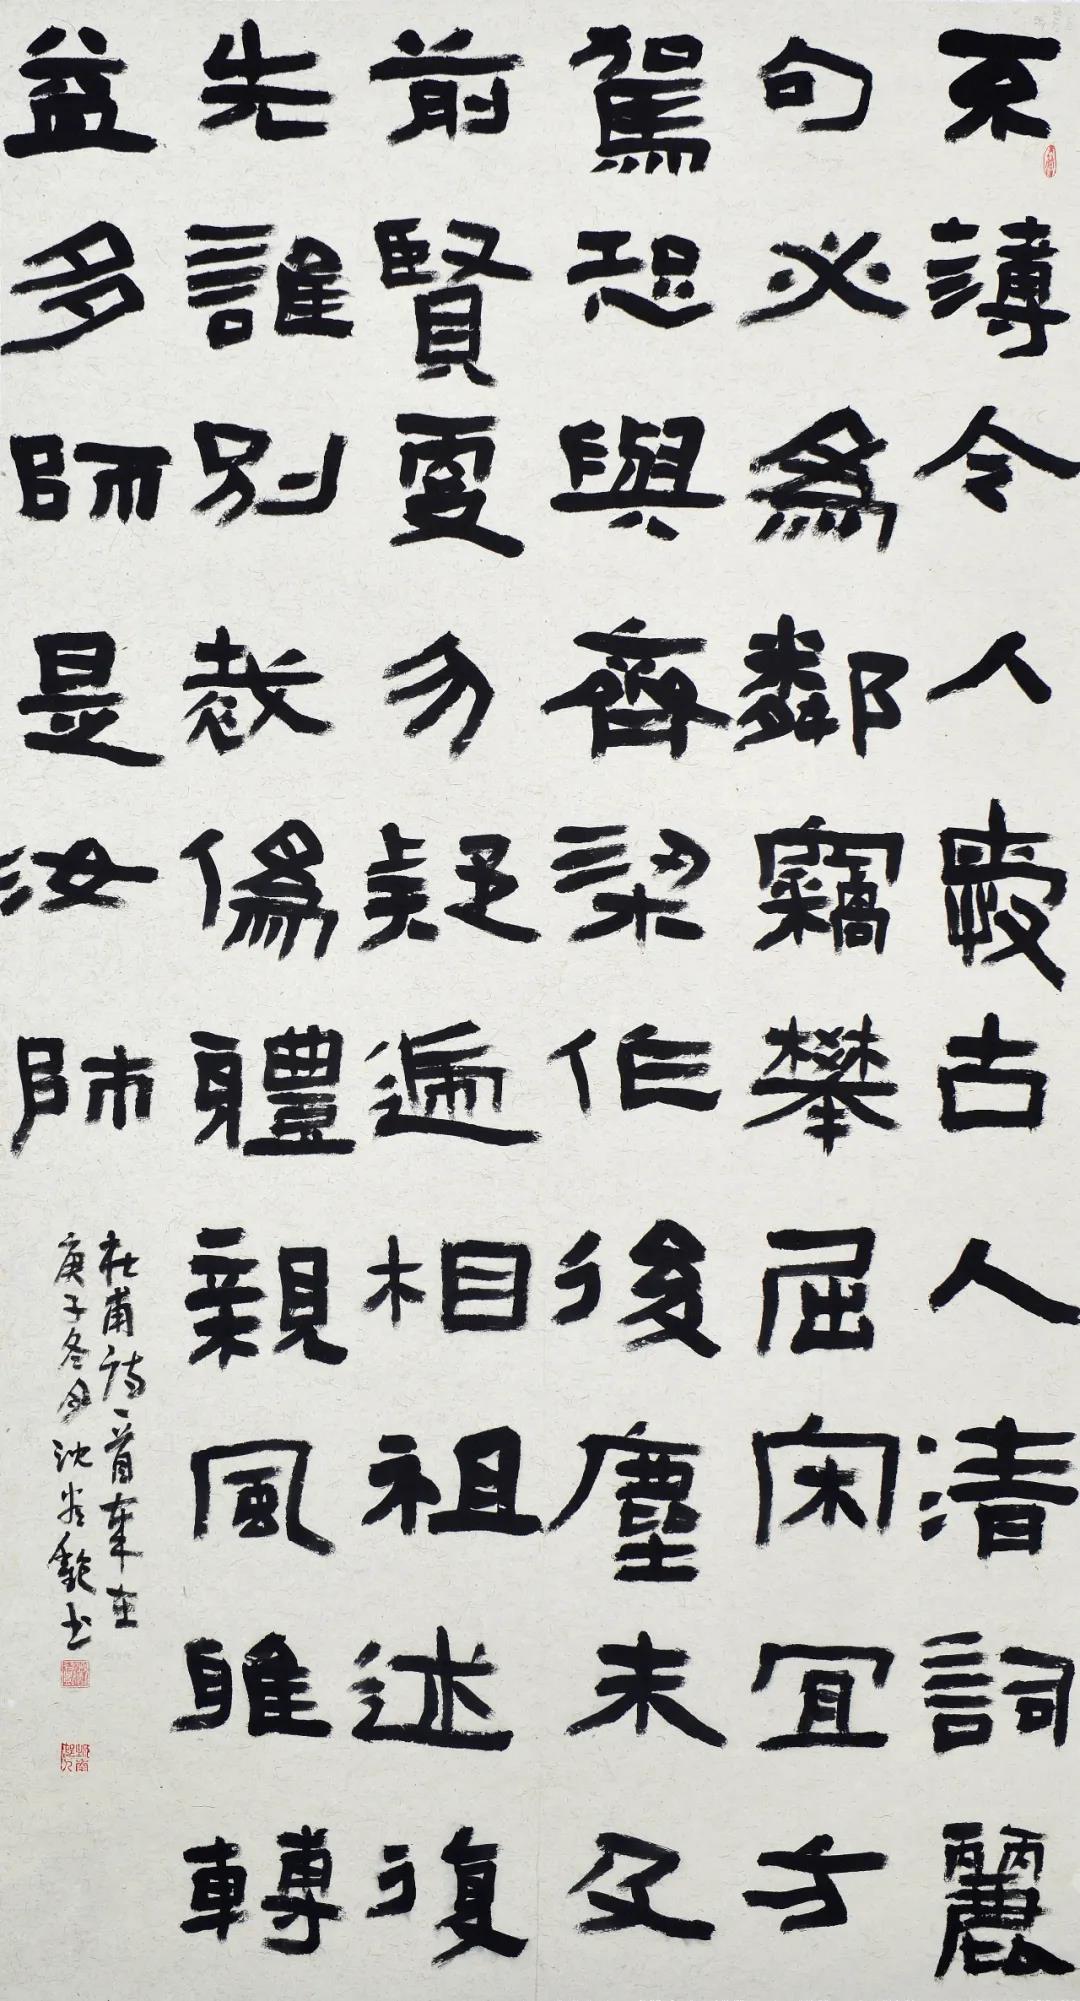 不薄今人愛古人清詞麗
句必為鄰竊攀屈宋宜方
駕恐與齊梁作後塵未及
前賢更勿疑遞相祖述復
先誰別裁偽體親風雅轉
益多師是汝師
杜甫詩一首
庚子冬月沈书